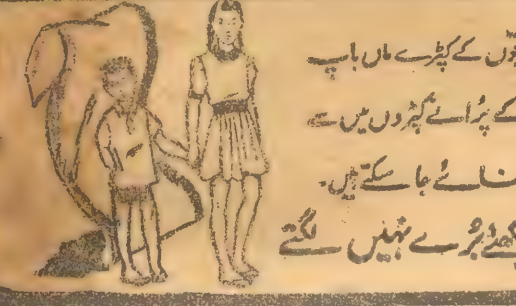 کے کپڑے ماں باپ
کے پرانے کپڑوں میں سے
جا سکتے ہیں۔
بُرے نہیں لگتے